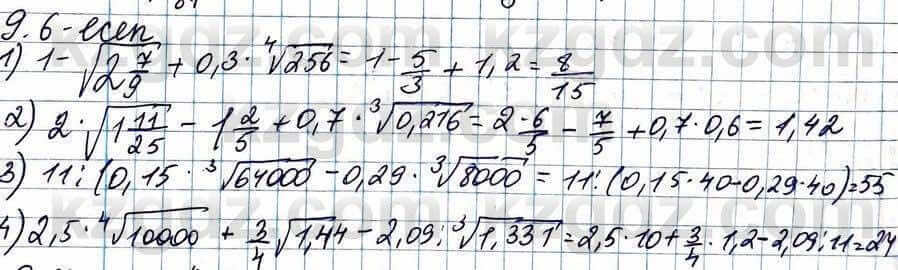 9.6-есеп
1) 1 - √(2 7/9) + 0,3 · ⁴√256 = 1 - 5/3 + 1,2 = 8/15
2) 2 · √(1 11/25) - 1 2/5 + 0,7 · ³√0,216 = 2 · 6/5 - 7/5 + 0,7 · 0,6 = 1,42
3) 11 : (0,15 · ³√64000 - 0,29 · ³√8000 = 11 : (0,15 · 40 - 0,29 · 40) = 55
4) 2,5 · ⁴√10000 + 3/4 √1,44 - 2,09 : ³√1,331 = 2,5 · 10 + 3/4 · 1,2 - 2,09 : 11 = 24